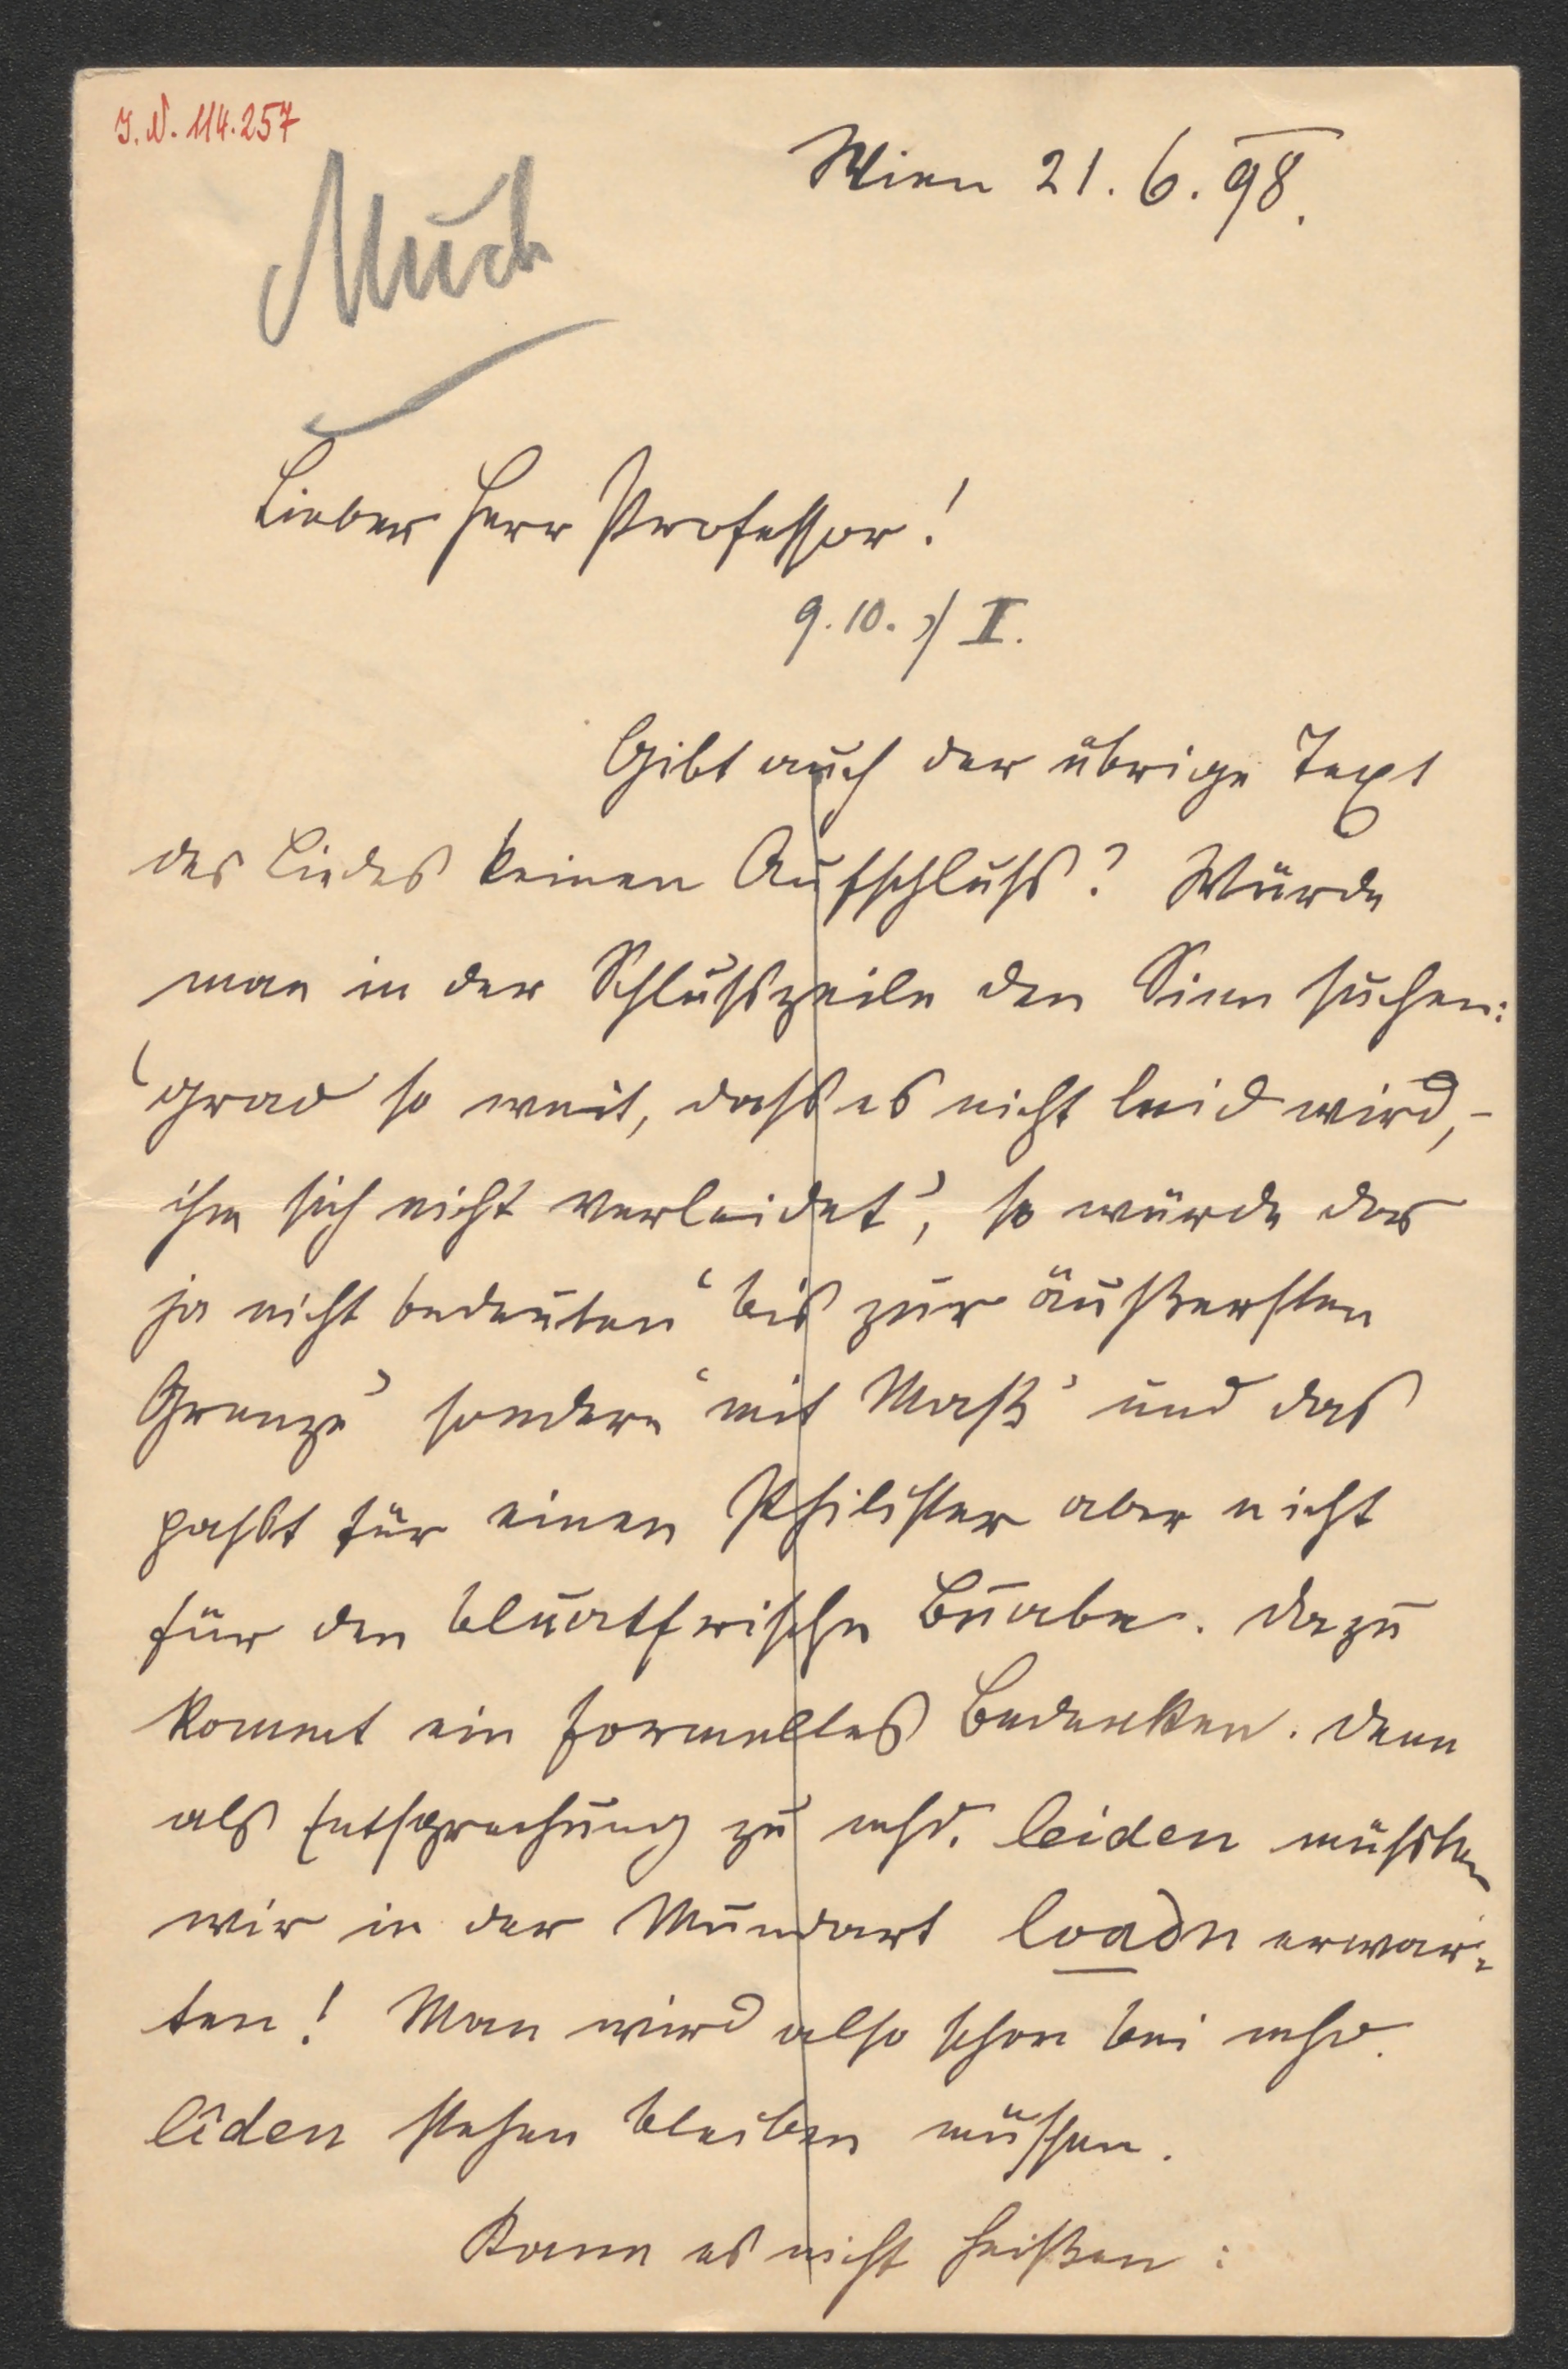 I. N. 114.257
Wien 21. 6. 98.
Much
Lieber Herr Professor!
9. 10. I.
Gibt auch der übrige Text
des Liedes keinen Aufschluss? Würde
man in der Schlusszeile den Sinn suchen:
‘grad so weit, dass es nicht leid wird,–
ihm sich nicht verleidet’, so würde das
ja nicht bedeuten ‘bis zur äußersten
Grenze’ sondern ‘mit Maß’ und das
passt für einen Philister aber nicht
für den bluatfrische Buabe. Dazu
kommt ein formelles Bedenken. Denn
als Entsprechung zu mhd. leiden müssten
wir in der Mundart loadn erwar-
ten! Man wird also schon bei mhd.
lîden stehen bleiben müssen.
Kann es nicht heißen: